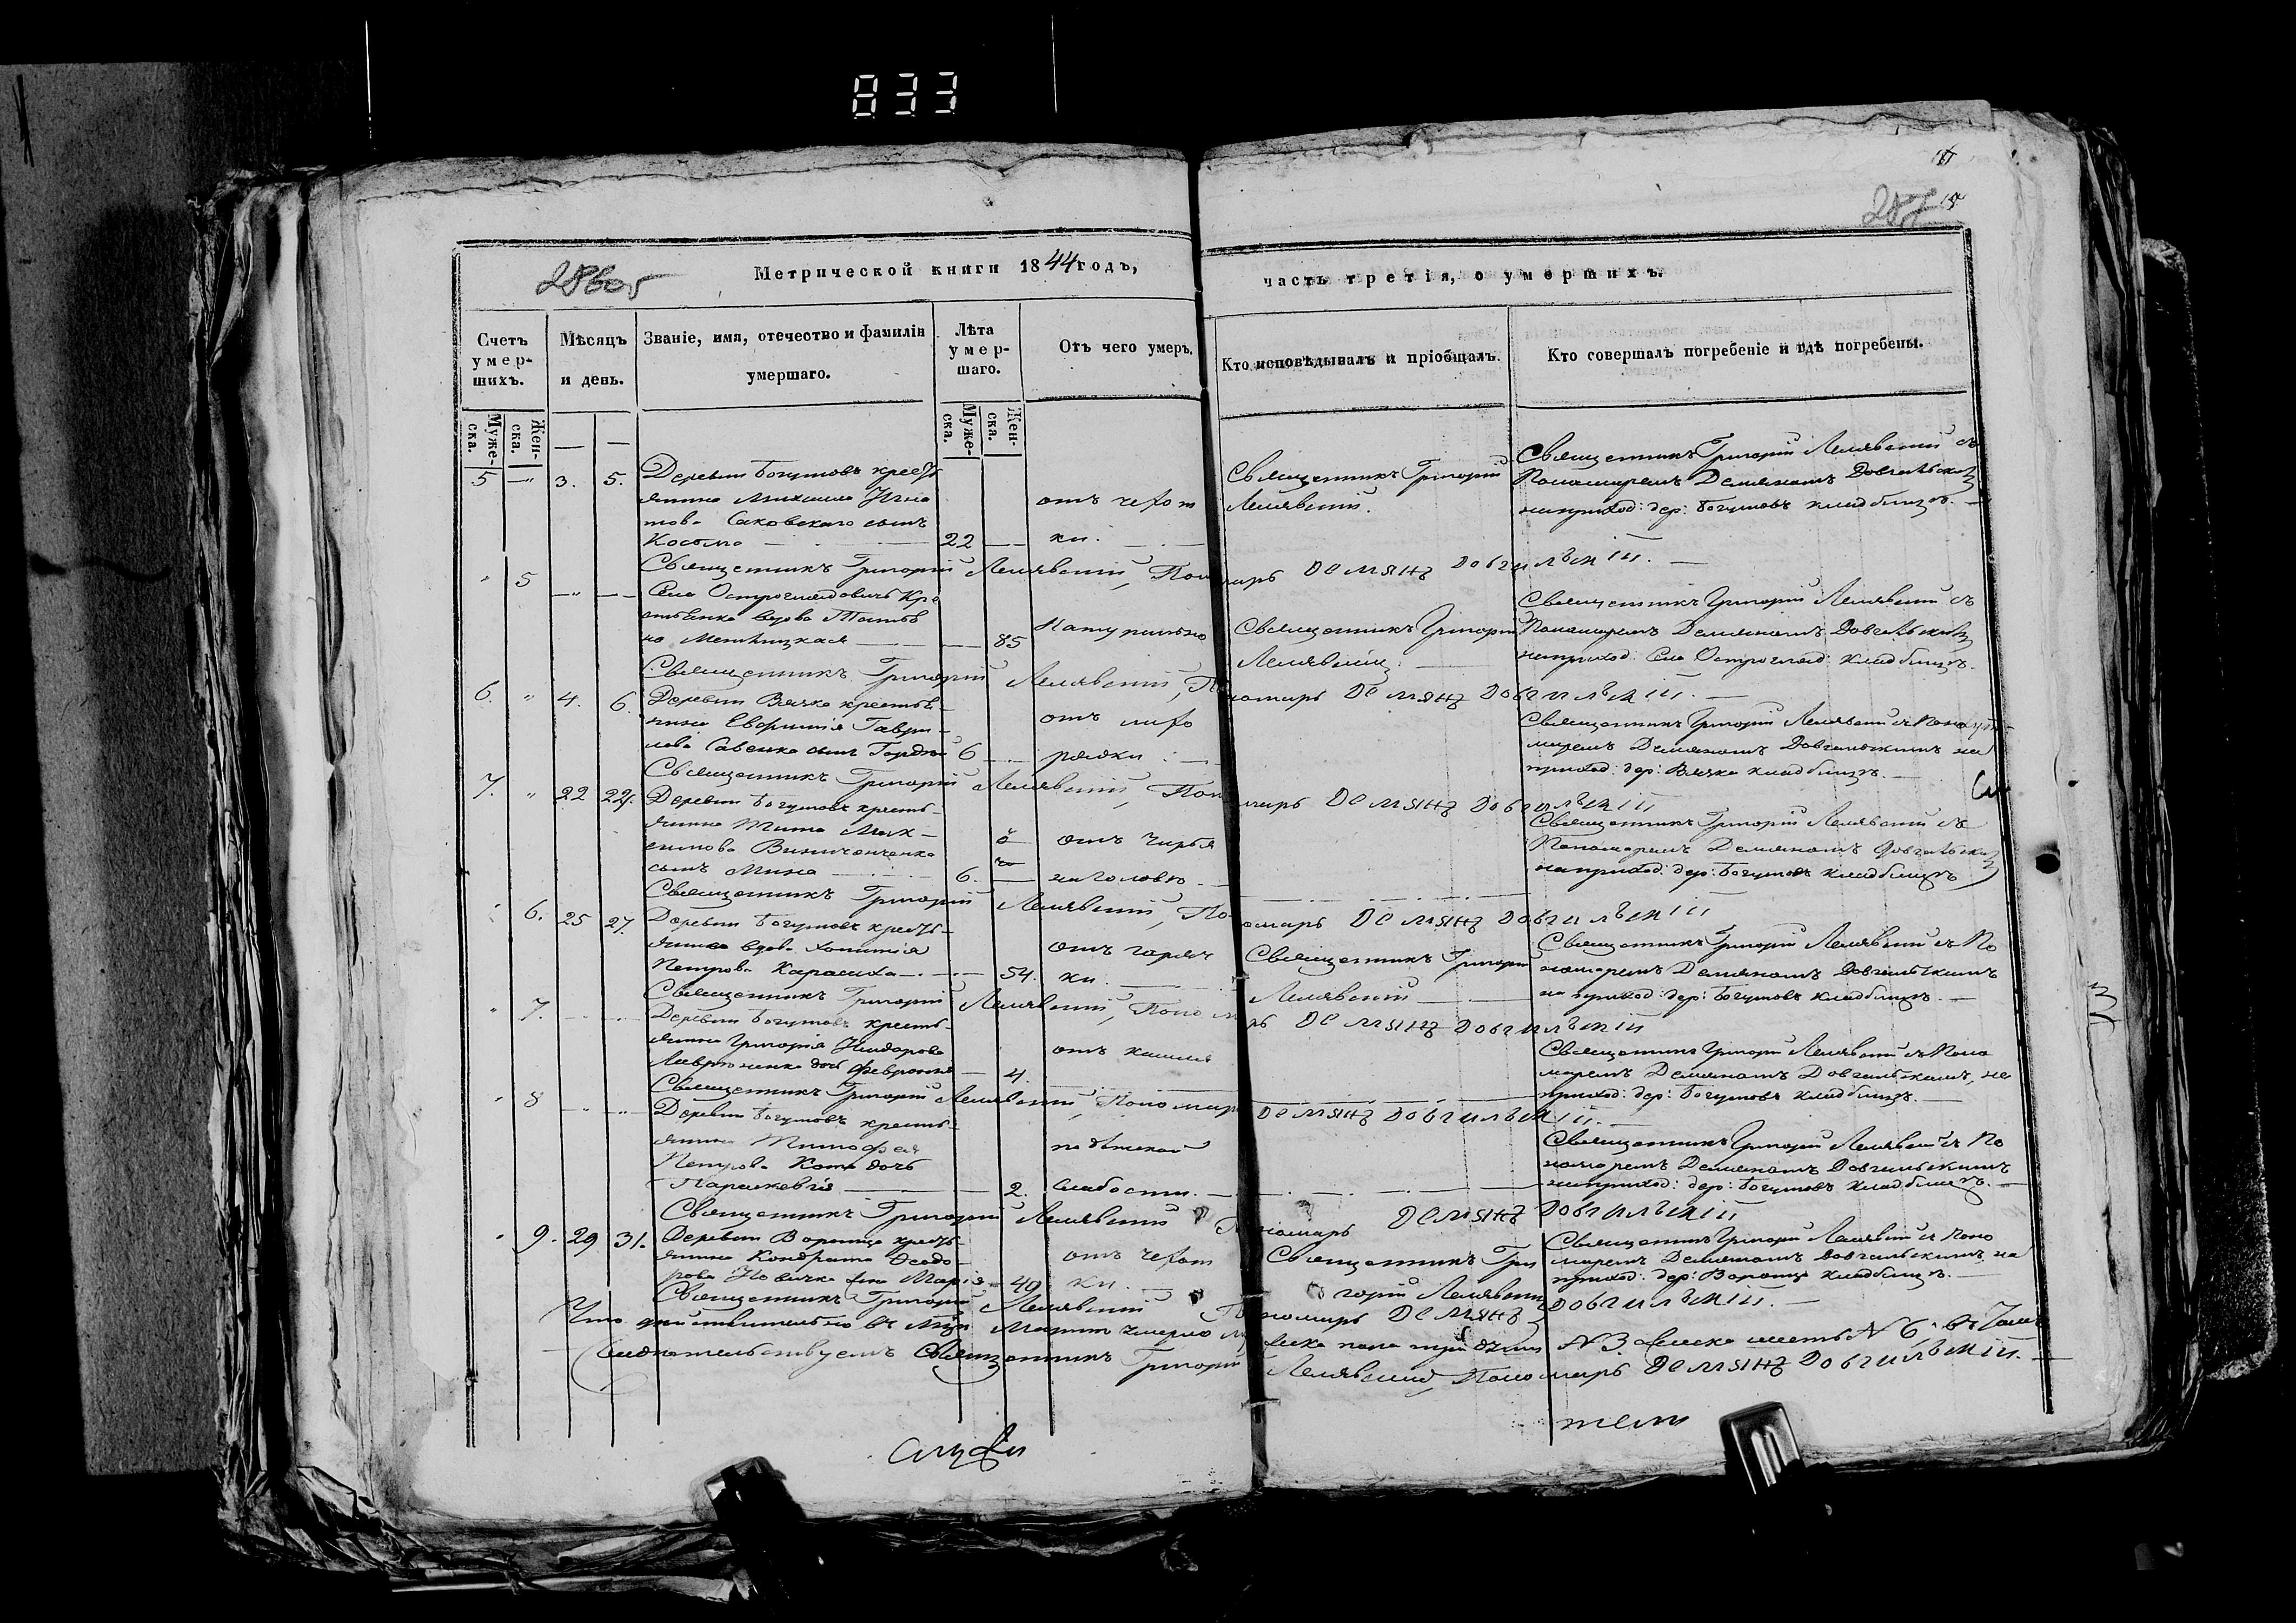 833
287
286 об
Метрической книги 1844 годъ,
часть третія, о умершихъ.
Счетъ умер-шихъ.
Мѣсяцъ и день.
Званіе, имя, отечество и фамилія умершаго.
Лѣта умер-шаго.
Отъ чего умеръ.
Кто исповѣдывалъ и пріобщалъ.
Кто совершалъ погребеніе и гдѣ погребены.
Муже-ска.
Жен-ска.
Муже-ска.
Жен-ска.
5 — 3. 5.
Деревни Богутовъ кресть
янина Михаила Игна
това Саковскаго сынъ
Косьма 22
отъ чехот
ки.
Священникъ Григорій
Лелявскій.
Священникъ Григорій Лелявскій съ
Пономаремъ Деміяномъ Довгальскимъ
на приход: дер: Богутовъ кладбищѣ.
Священникъ Григорій Лелявскій, Пономарь Демянъ Довгильскій.
" 5 — " —
Села Остроглядовичъ Кре
стьянка вдова Татья
на 85
Натурально
Священникъ Григорій
Лелявскій
Священникъ Григорій Лелявскій съ
Пономаремъ Деміяномъ Довгальскимъ
на приход: Села Острогляд: кладбищѣ.
Священникъ Григорій Лелявскій, Пономарь Демянъ Довгильскій.
6. " 4. 6.
Деревни Вязка крестья
нина Евфимія Гаври-
лова Савенка сынъ Гордѣй 6
Священникъ Григорій Лелявскій съ Поно
маремъ Деміяномъ Довгальскимъ на
приход: дер: Вязка кладбищѣ.
Священникъ Григорій Лелявскій, Пономарь Демянъ Довгильскій
7. " 22 24.
Деревни Богутовъ кресть-
янина Тита Мак-
симова Винниченка
сынъ Мина 6.
отъ чирья
на головѣ
Священникъ Григорій Лелявскій съ
Пономаремъ Деміяномъ Довгальскимъ
на приход: дер: Богутовъ кладбищѣ
Священникъ Григорій Лелявскій, Пономарь Демянъ Довгильскій
" 6. 25 27.
Деревни Богутовъ кресть-
янка вдова
Петрова Карасиха 54.
отъ горяч
ки.
Священникъ Григорій
Лелявскій
Священникъ Григорій Лелявскій съ По
номаремъ Деміяномъ Довгальскимъ
на приход: дер: Богутовъ кладбищѣ.
Священникъ Григорій Лелявскій, Пономарь Демянъ Довгильскій
" 7.
Деревни Богутовъ кресть-
янина Григорія
дочь Февронія 4.
отъ кашля
Священникъ Григорій Лелявскій съ Поно
маремъ Деміяномъ Довгальскимъ, на
приход: дер: Богутовъ кладбищѣ.
Священникъ Григорій Лелявскій, Пономарь Демянъ Довгильскій.
" 8
Деревни Богутовъ кресть-
янина Тимофея
Петрова Кота дочь
Параскевія 2.
по дѣтской
слабости.
Священникъ Григорій Лелявскій съ По
номаремъ Деміяномъ Довгальскимъ
на приход: дер: Богутовъ кладбищѣ.
Священникъ Григорій Лелявскій Пономарь Демянъ Довгильскій
" 9. 29 31.
Деревни Воротца кресть
янина Кондрата Ѳеодо-
рова Новичка жена Марія 40
отъ чехот
ки.
Священникъ Гри
горій Лелявскій
Священникъ Григорій Лелявскій съ Поно
маремъ Деміяномъ Довгальскимъ на
приход: дер: Воротца кладбищѣ.
Священникъ Григорій Лелявскій Пономарь Демянъ Довгильскій.
Что дѣйствительно въ М-цѣ Мартѣ умерло му
жеска пола три души №3. женска шесть №6. въ томъ
свидѣтельствуемъ Священникъ Григорій Лелявскій, Пономарь Демянъ Довгильскій.